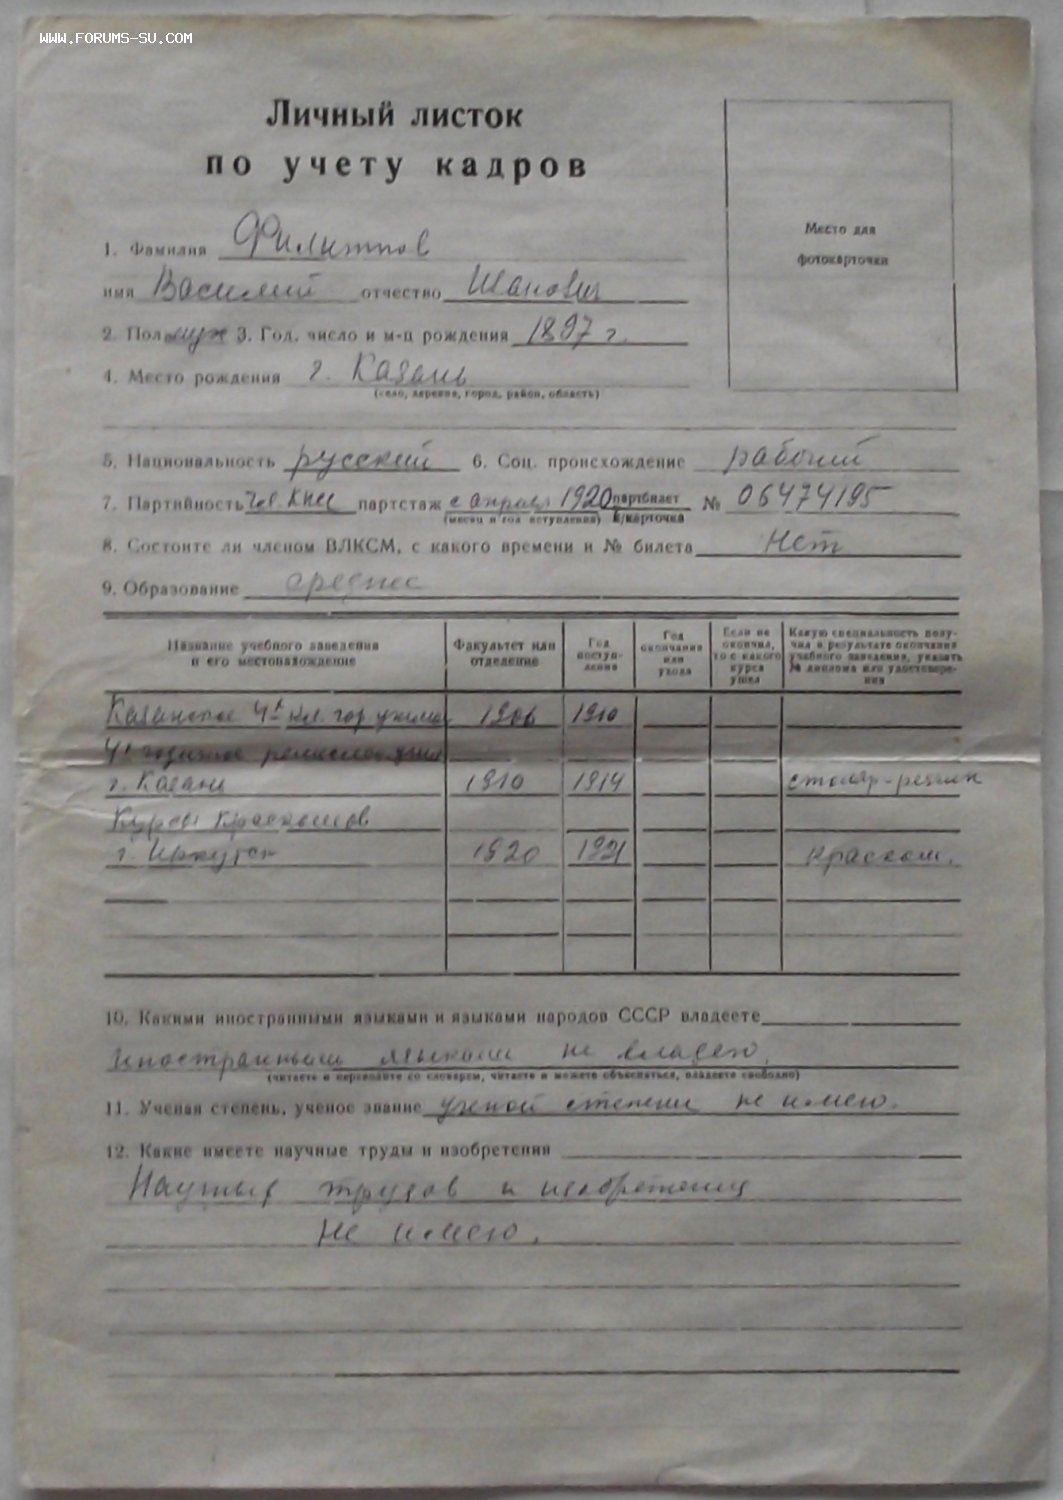 WWW.FORUMS-SU.COM
Личный листок
по учету кадров
Место для
фотокарточки
1. Фамилия Филиппов
имя Василий отчество Иванович
2. Пол муж 3. Год, число и м-ц рождения 1897 г.
4. Место рождения г. Казань
(село, деревня, город, район, область)
5. Национальность русский 6. Соц. происхождение рабочий
7. Партийность Чл. КПСС партстаж с апреля 1920 партбилет № 06474195
(месяц и год вступления) к/карточка
8. Состоите ли членом ВЛКСМ, с какого времени и № билета Нет
9. Образование среднее
Название учебного заведения и его местонахождение
Факультет или отделение
Год поступления
Год окончания или ухода
Если не окончил, то с какого курса ушел
Какую специальность получил в результате окончания учебного заведения, указать № диплома или удостоверения
Казанское 4х кл. гор. 1906 1910
4х годичное
г. Казани 1910 1914 столяр-
Курсы Краскомов
г. Иркутск 1920 1921 краском.
10. Какими иностранными языками и языками народов СССР владеете
иностранными языками не владею.
(читаете и переводите со словарем, читаете и можете объясняться, владеете свободно)
11. Ученая степень, ученое звание ученой степени не имею.
12. Какие имеете научные труды и изобретения
Научных трудов и изобретения
не имею.